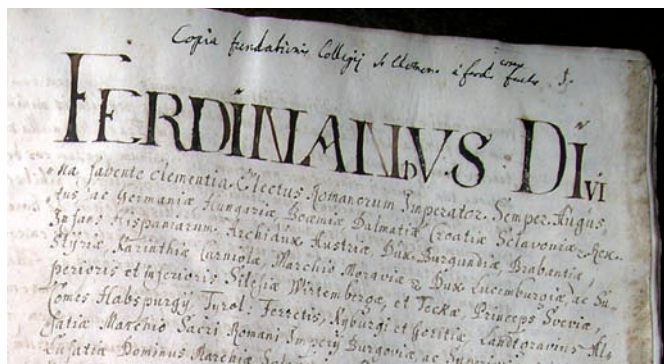 Copia fundationis Collegij S. Clemen. à ferdi. facta
FERDINANDVS DIVI
na favente clementia Electus Romanorum Imperator Semper Augus,
tus ac Germaniæ Hungariæ, Boemiæ Dalmatiæ Croatiæ Sclavoniæ Rex
Infans Hispaniarum Archidux Austriæ, Dux Burgundiæ, Brabantiæ,
Styriæ, Karinthiæ Carniolæ, Marchio Moraviæ Dux Lucemburgiæ, ac Su,
perioris et inferioris Silesiæ Wirtembergæ, et Teckæ, Princeps Sveviæ,
Comes Habspurgi, Tyrol: Ferretis, Kyburgi et Goritiæ, Landtgravius Al,
satiæ Marchio Sacri Romani Imperij Burgoviæ, ac
Lusatiæ Dominus Marchiæ